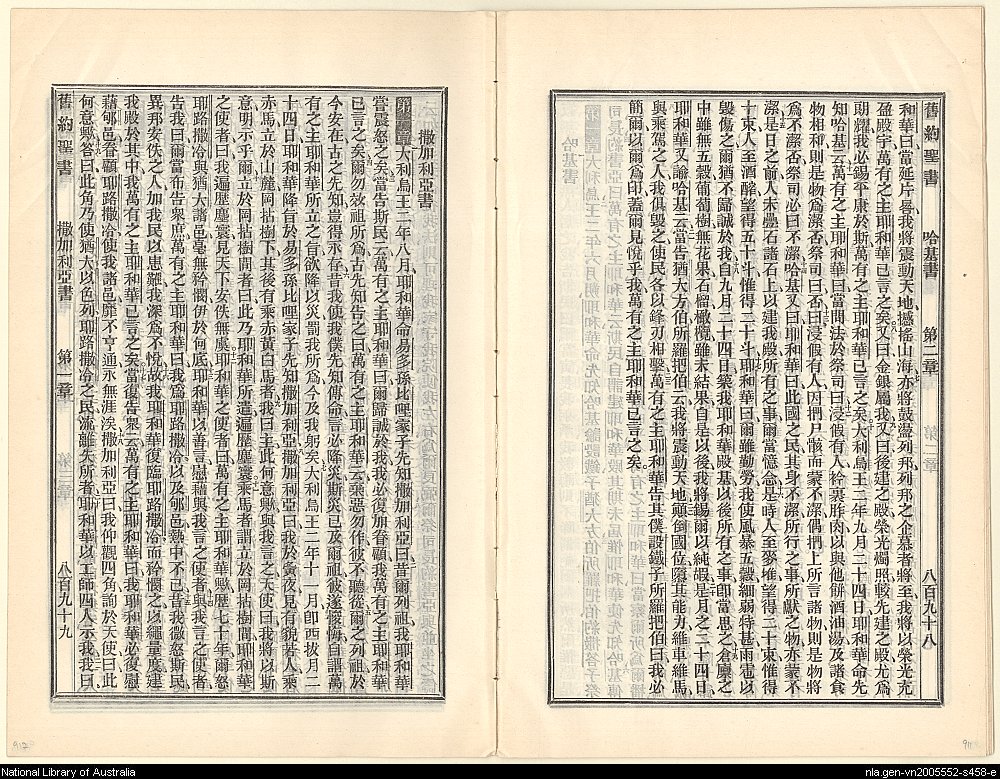 舊約聖書 哈基書 第二章 八百九十八
和華曰當延片晷我將震動天地撼搖山海亦將鼓盪列邦列邦之企慕者將至我將以榮光充
盈殿宇萬有之主耶和華已言之矣又曰金銀屬我又曰後建之殿榮光燭照較先建之殿尤爲
朗耀我必錫平康於斯萬有之主耶和華已言之矣大利烏王二年九月二十四日耶和華命先
知哈基云萬有之主耶和華曰當問法於祭司曰浸假有人衿裏胙肉以與他餅酒油湯及諸食
物相和則是物爲潔否祭司曰否曰浸假有人因捫尸骸而蒙不潔偶捫上所言諸物則是物將
爲不潔否祭司必曰不潔哈基又曰耶和華曰此國之民其身不潔所行之事所獻之物亦蒙不
潔是日之前人未疊石諸石上以建我殿所有之事爾當憶念是時人至麥堆望得二十束惟得
十束人至酒醡望得五十斗惟得二十斗耶和華曰爾雖勤勞我使風暴五穀細弱特甚雨雹以
毀傷之爾猶不歸誠於我自九月二十四日築我耶和華殿基以後所有之事卽當思之倉廩之
中雖無五穀葡萄樹無花果石榴橄欖雖未結果自是以後我將錫爾以純嘏是月之二十四日
耶和華又諭哈基云當告猶大方伯所羅把伯云我將震動天地顚倒國位隳其能力維車維馬
與乘駕之人我俱毀之使民各以鋒刃相擊萬有之主耶和華告其僕設鐵子所羅把伯曰我必
簡爾以爾爲印蓋爾見悅乎我萬有之主耶和華已言之矣
撒加利亞書
大利烏王二年八月耶和華命易多孫比哩家子先知撒加利亞曰昔爾列祖我耶和華
嘗震怒之矣當告斯民云萬有之主耶和華曰爾歸誠於我我必復加眷顧我萬有之主耶和華
已言之矣爾勿效祖所爲古先知告之曰萬有之主耶和華云棄惡勿作彼不聽從爾之列祖於
今安在古之先知豈得永存昔我使我僕先知傳命言必降災斯災已及爾祖彼遂悛悔自謂萬
有之主耶和華所立之旨欲降以災罰我所爲今及我躬矣大利烏王二年十一月卽西拔月二
十四日耶和華降旨於易多孫比哩家子先知撒加利亞撒加利亞曰我於夤夜見有貌若人乘
赤馬立於山麓岡拈樹下其後有乘赤黃白馬者我曰主此何意歟與我言之天使曰我將以斯
意明示乎爾立於岡拈樹間者曰此乃耶和華所遣遍歷塵寰乘馬者謂立於岡拈樹間耶和華
之使者曰我遍歷塵寰見天下安佚無虞耶和華之使者曰萬有之主耶和華歟歷七十年爾怒
耶路撒冷與猶大諸邑毫無矜憫伊於何底耶和華以善言慰藉與我言之使者與我言之使者
告我曰爾當布告衆庶萬有之主耶和華曰我爲耶路撒冷以及郇邑熱中不已昔我微怒斯民
異邦安佚之人加我民以患難我深爲不悅故我耶和華復臨耶路撒冷而矜憫之以繩量度建
我殿於其中我萬有之主耶和華已言之矣當復告衆云萬有之主耶和華曰我耶和華必復慰
藉郇邑眷顧耶路撒冷使我諸邑靡不亨通永無涯涘撒加利亞曰我仰觀四角詢於天使曰此
何意歟答曰此角乃使猶大以色列耶路撒冷之民流離失所者耶和華以工師四人示我我曰
舊約聖書 撒加利亞書 第一章 八百九十九
National Library of Australia
nla.gen-vn2005552-s458-e